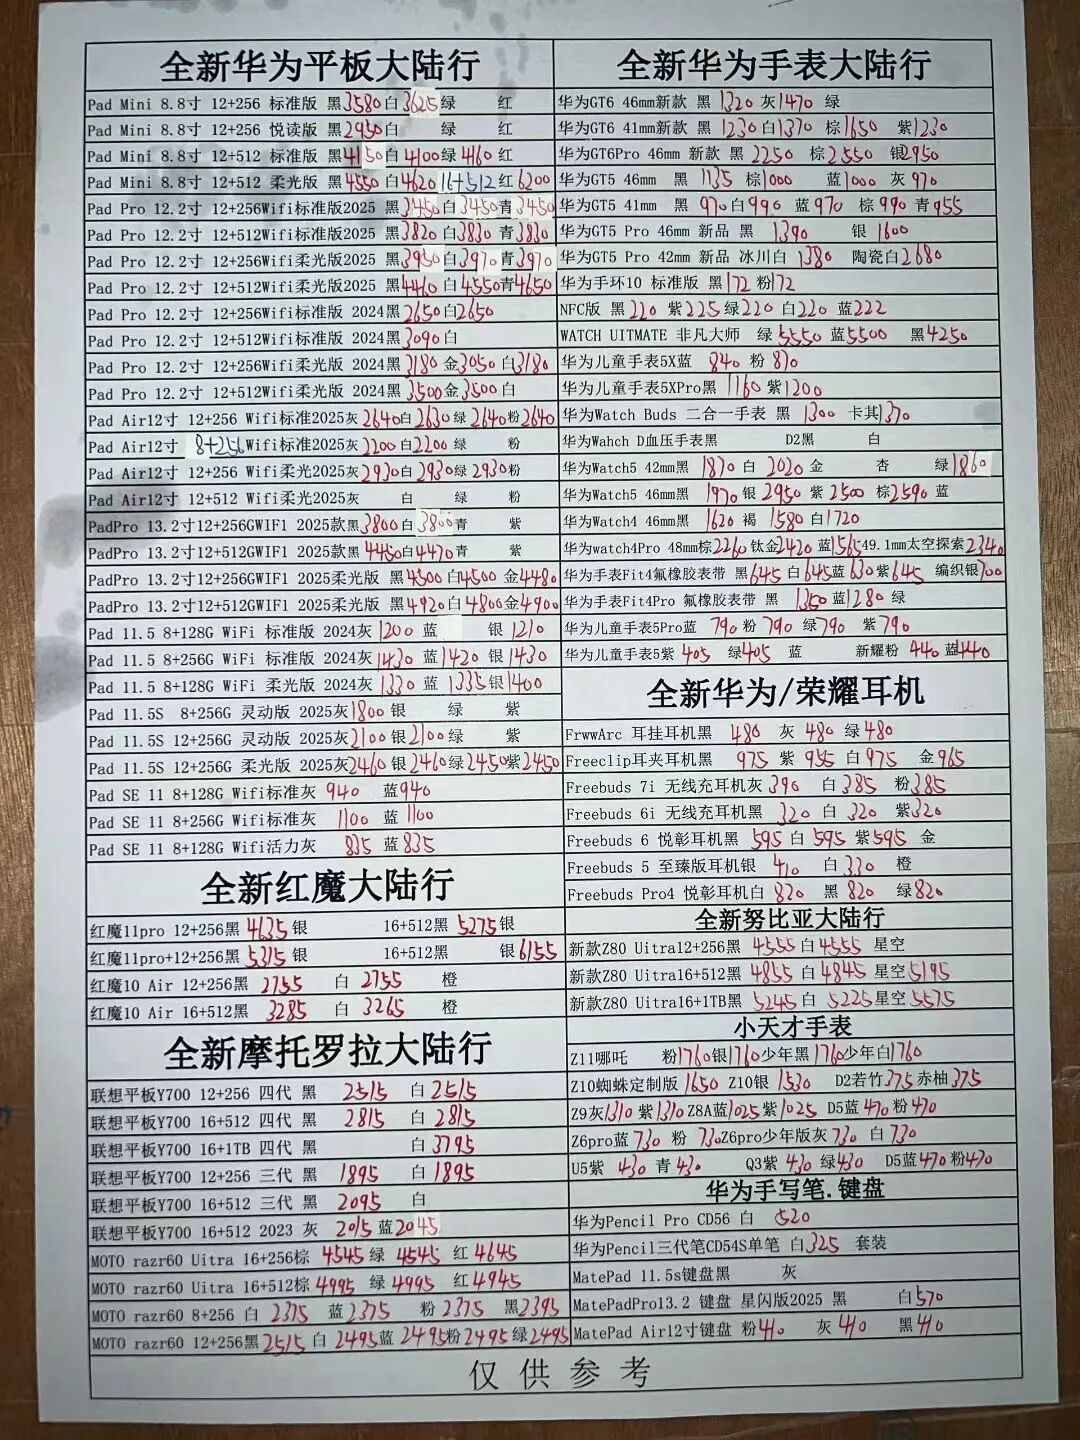 全新华为平板大陆行
Pad Mini 8.8寸 12+256 标准版 黑3580白3625绿 红
Pad Mini 8.8寸 12+256 悦读版 黑2950白 绿 红
Pad Mini 8.8寸 12+512 标准版 黑4150白4100绿4160红
Pad Mini 8.8寸 12+512 柔光版 黑4550白4620 16+512红6200
Pad Pro 12.2寸 12+256Wifi标准版2025 黑3450白3450青3450
Pad Pro 12.2寸 12+512Wifi标准版2025 黑3820白3830青3830
Pad Pro 12.2寸 12+256Wifi柔光版2025 黑3950白3970青3970
Pad Pro 12.2寸 12+512Wifi柔光版2025 黑4460白4550青4650
Pad Pro 12.2寸 12+256Wifi标准版2024黑2650白2650
Pad Pro 12.2寸 12+512Wifi标准版2024黑3090白
Pad Pro 12.2寸 12+256Wifi柔光版2024黑3180金3050白3180
Pad Pro 12.2寸 12+512Wifi柔光版2024黑3500金3500白
Pad Air12寸 12+256 Wifi标准2025灰2640白2630绿2640粉2640
Pad Air12寸 8+256Wifi标准版2025灰2200白2200绿 粉
Pad Air12寸 12+256 Wifi柔光2025灰2930白2930绿2930粉
Pad Air12寸 12+512 Wifi柔光2025灰 白 绿 粉
PadPro 13.2寸12+256GWIF1 2025款黑3800白3800青 紫
PadPro 13.2寸12+512GWIF1 2025款黑4450白4470青 紫
PadPro 13.2寸12+256GWIF1 2025柔光版 黑4500白4500金4480
PadPro 13.2寸12+512GWIF1 2025柔光版 黑4920白4800金4900
Pad 11.5 8+128G WiFi 标准版 2024灰1200蓝 银1210
Pad 11.5 8+256G WiFi 标准版 2024灰1430蓝1420银1430
Pad 11.5 8+128G WiFi 柔光版 2024灰1330蓝1335银1400
Pad 11.5S 8+256G 灵动版 2025灰1800银 绿 紫
Pad 11.5S 12+256G 灵动版 2025灰2100银2100绿 紫
Pad 11.5S 12+256G 柔光版 2025灰2460银2460绿2450紫2450
Pad SE 11 8+128G Wifi标准灰 940 蓝940
Pad SE 11 8+256G Wifi标准灰 1100 蓝1100
Pad SE 11 8+128G Wifi活力灰 835 蓝835
全新红魔大陆行
红魔11pro 12+256黑4635银 16+512黑5275银
红魔11pro+12+256黑5315银 16+512黑 银6155
红魔10 Air 12+256黑 2755 白 2755 橙
红魔10 Air 16+512黑 3285 白 3265 橙
全新摩托罗拉大陆行
联想平板Y700 12+256 四代 黑 2515 白2515
联想平板Y700 16+512 四代 黑 2815 白2815
联想平板Y700 16+1TB 四代 黑 白3795
联想平板Y700 12+256 三代 黑 1895 白1895
联想平板Y700 16+512 三代 黑 2095 白
联想平板Y700 16+512 2023 灰 2015蓝2045
MOTO razr60 Uitra 16+256棕 4545绿 4545 红4645
MOTO razr60 Uitra 16+512棕4995 绿 4995 红4945
MOTO razr60 8+256 白 2375 蓝2375 粉2375 黑2395
MOTO razr60 12+256黑2515白 2495蓝 2495粉2495绿2495
全新华为手表大陆行
华为GT6 46mm新款 黑 1320灰1470 绿
华为GT6 41mm新款 黑 1230白1370 棕1650 紫1230
华为GT6Pro 46mm 新款 黑 2250 棕2550 银2950
华为GT5 46mm 黑 1135棕1000 蓝1000 灰970
华为GT5 41mm 黑 970白990 蓝970 棕990青955
华为GT5 Pro 46mm 新品 黑 1390 银 1600
华为GT5 Pro 42mm 新品 冰川白 1380 陶瓷白2680
华为手环10 标准版 黑172粉172
NFC版 黑220 紫225绿220白220蓝222
WATCH UITMATE 非凡大师 绿5550蓝5500 黑4250
华为儿童手表5X蓝 840 粉 870
华为儿童手表5XPro黑 1160紫1200
华为Watch Buds 二合一手表 黑 1300 卡其1370
华为Wahch D血压手表黑 D2黑 白
华为Watch5 42mm黑 1870白2020金 杏 绿1860
华为Watch5 46mm黑 1970银2950紫2500棕2590蓝
华为Watch4 46mm黑 1620褐 1580白1720
华为watch4Pro 48mm棕2260钛金2420蓝156549.1mm太空探索2340
华为手表Fit4氟橡胶表带 黑645白645蓝630紫645 编织银700
华为手表Fit4Pro 氟橡胶表带 黑 1350蓝1280绿
华为儿童手表5Pro蓝 790粉790绿790 紫790
华为儿童手表5紫 405 绿405 蓝 新耀粉 440蓝440
全新华为/荣耀耳机
FrwwArc 耳挂耳机黑 480 灰 480绿480
Freeclip耳夹耳机黑 975 紫955白975 金965
Freebuds 7i 无线充耳机灰390 白385 粉385
Freebuds 6i 无线充耳机黑 320 白320 紫320
Freebuds 6 悦彰耳机黑 595白595紫595 金
Freebuds 5 至臻版耳机银 410 白330 橙
Freebuds Pro4 悦彰耳机白820 黑820 绿820
全新努比亚大陆行
新款Z80 Uitra12+256黑 4555白4555 星空
新款Z80 Uitra16+512黑 4855白4845星空5195
新款Z80 Uitra16+1TB黑 5245白5225星空5575
小天才手表
Z11哪吒 粉1760银1760少年黑1760少年白1760
Z10蜘蛛定制版1650 Z10银 1530 D2若竹375赤柚375
Z9灰1310紫1310Z8A蓝1025紫1025 D5蓝470粉470
Z6pro蓝730 粉 730Z6pro少年版灰730 白730
U5紫 430青430 Q3紫430绿430 D5蓝470粉470
华为手写笔.键盘
华为Pencil Pro CD56 白 520
华为Pencil三代笔CD54S单笔 白325 套装
MatePad 11.5s键盘黑 灰
MatePadPro13.2 键盘 星闪版2025 黑 白570
MatePad Air12寸键盘 粉410 灰410 黑410
仅供参考